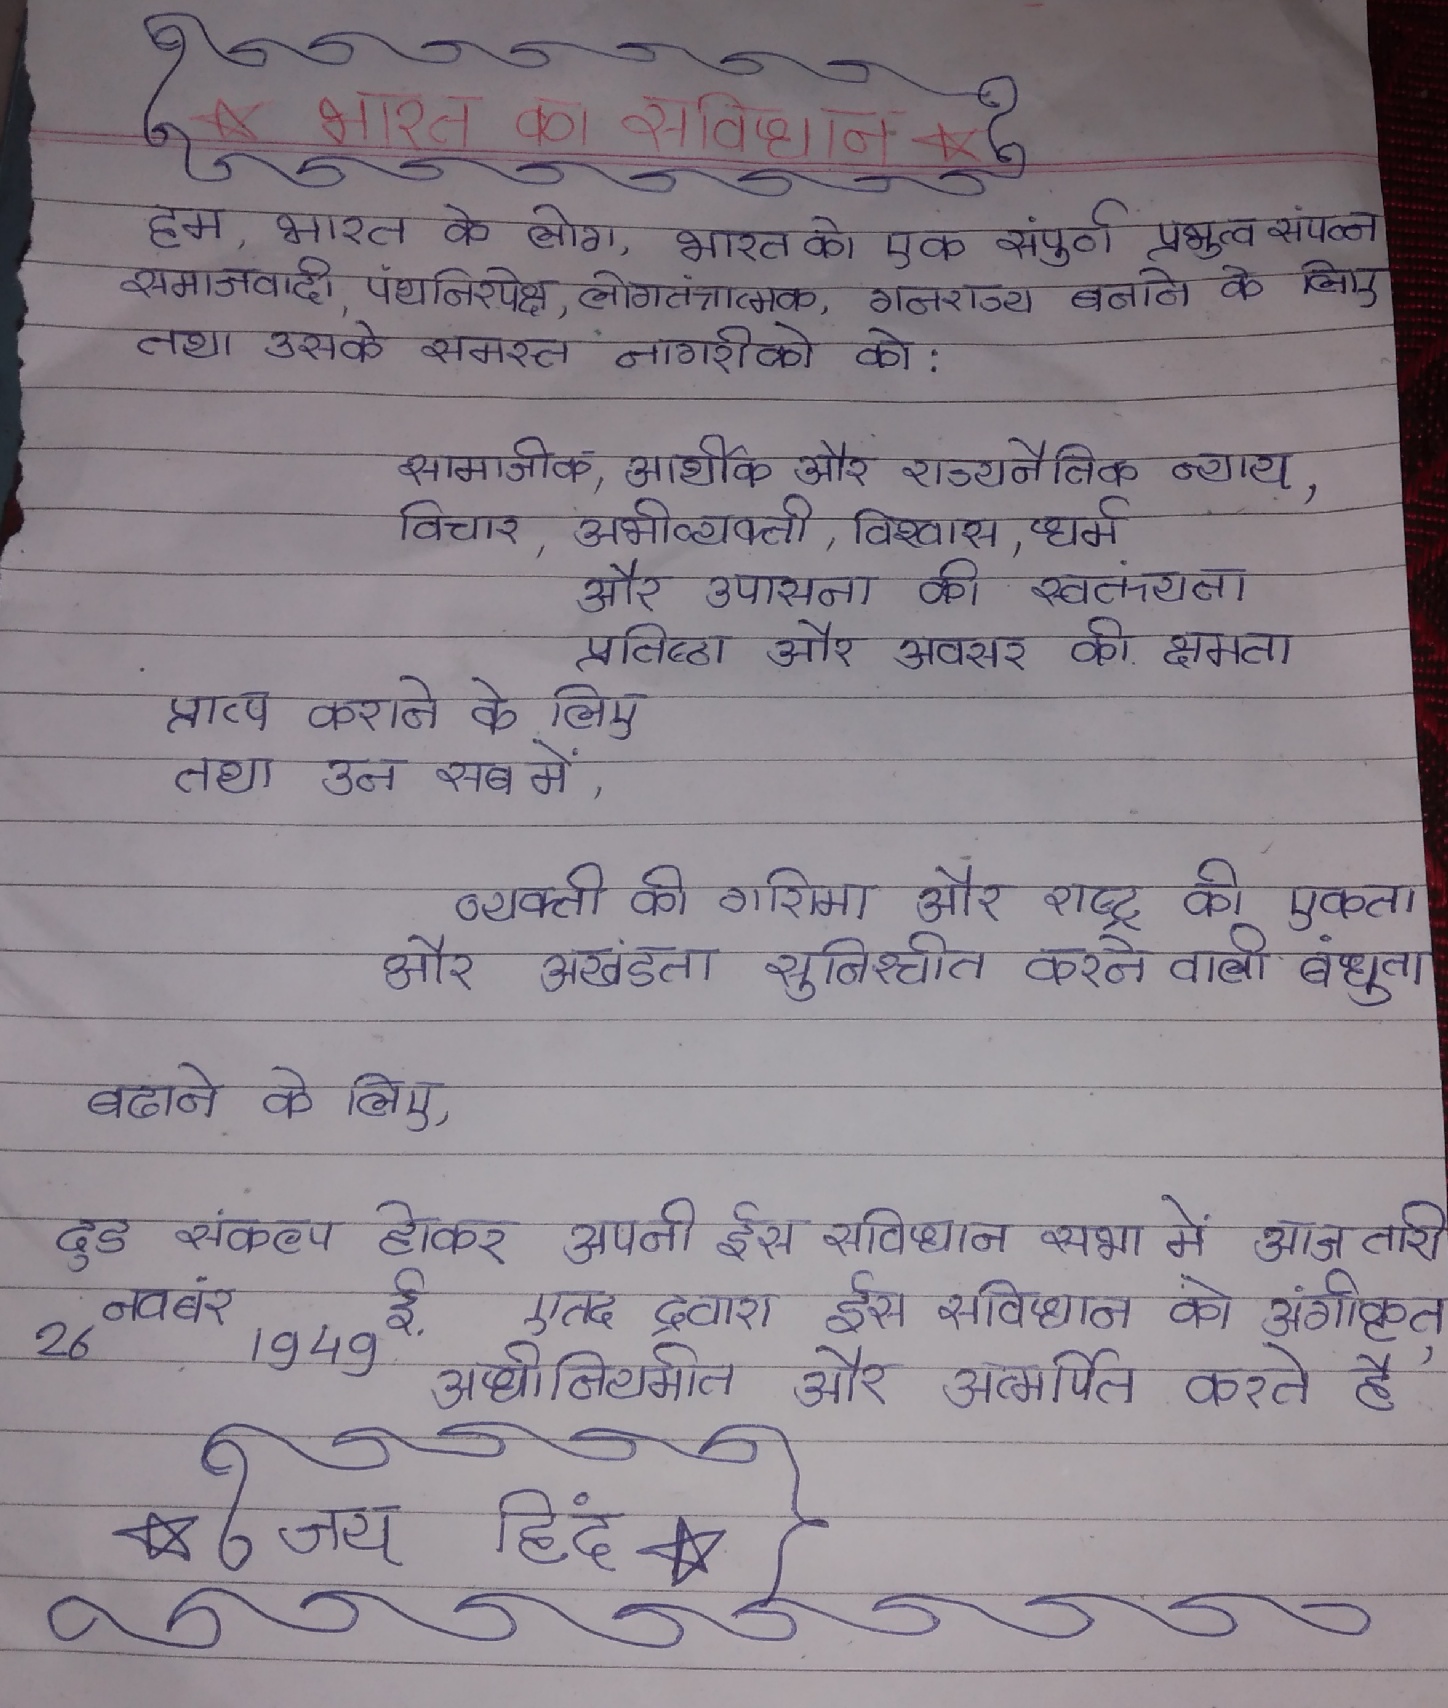 भारत का सविधान
हम, भारत के लोग, भारत को एक संपुर्ण प्रभुत्व संपन्न
समाजवादी, पंथनिरपेक्ष, लोगतंत्रात्मक, गनराज्य बनाने के लिए
तथा उसके समस्त नागरीको को:
सामाजीक, आर्थीक और राज्यनैतिक न्याय,
विचार, अभीव्यक्ती, विश्वास, धर्म
और उपासना की स्वतंत्र्यता
प्रतिष्ठा और अवसर की क्षमता
प्राप्त कराने के लिए
तथा उन सब में,
व्यक्ती की गरिमा और राष्ट्र की एकता
और अखंडता सुनिश्चीत करने वाली बंधुता
बढाने के लिए,
दुड संकल्प होकर अपनी ईस सविधान सभा में आज तारी
26 नवबंर 1949 ई. एतद द्रवारा ईस सविधान को अंगीकृत,
अधीनियमीत और अत्मर्पित करते है
जय हिंद